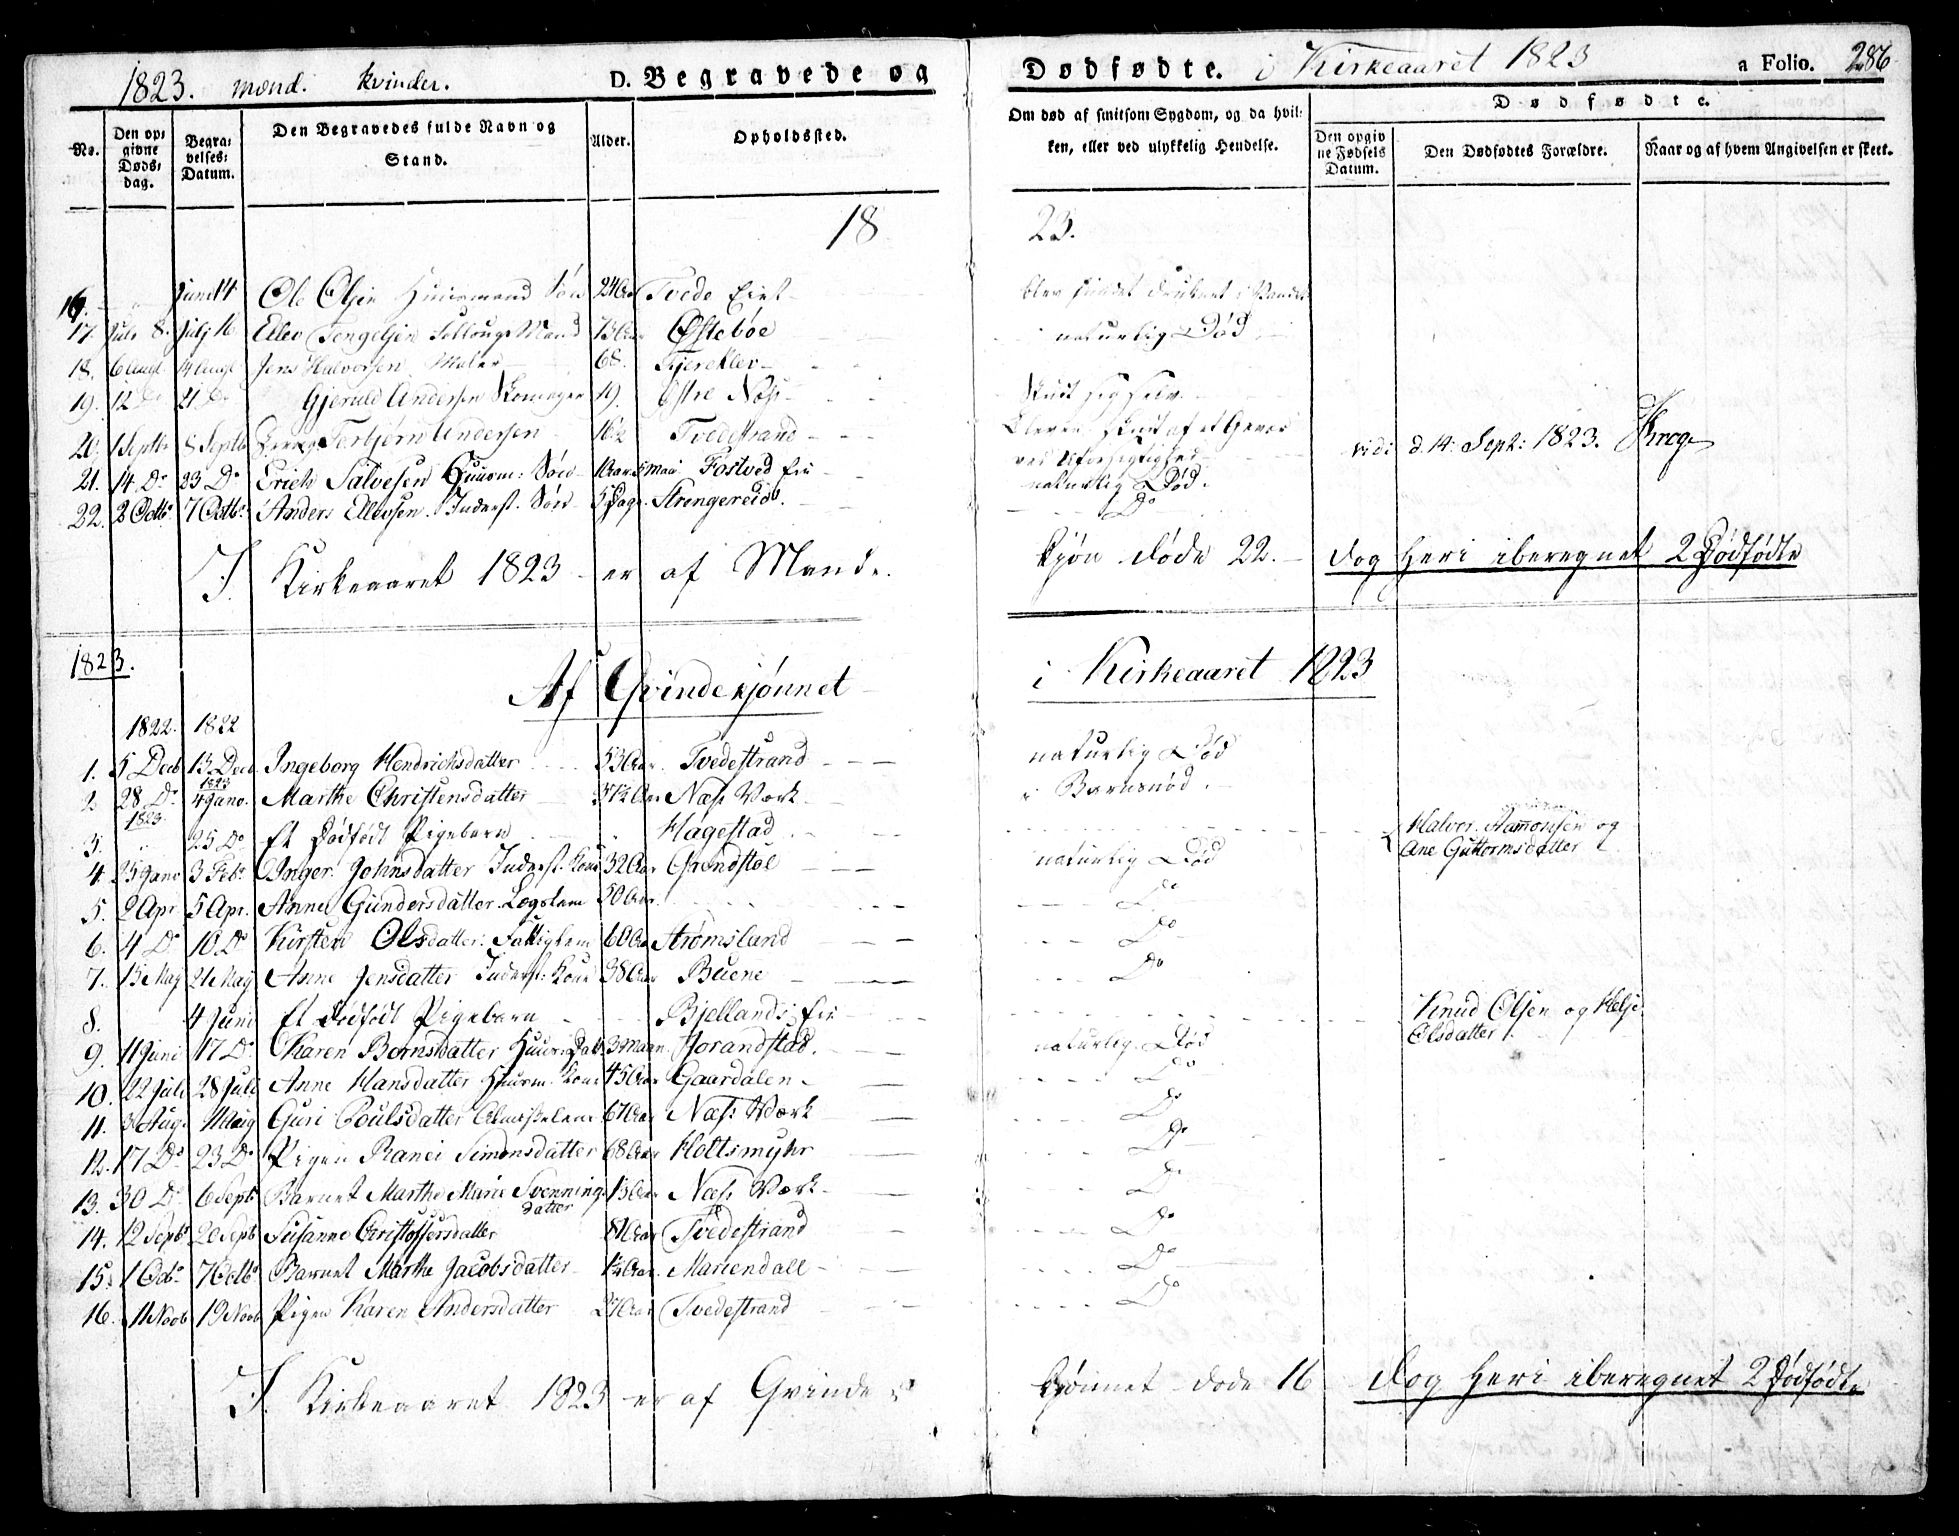 1823. mænd. kvinder. D. Begravede og Dødfødte. i Kirkeaaret 1823 a Folio. 286
No. | Den opgivne Dødsdag. | Begravelses-Datum. | Den Begravedes fulde Navn og Stand. | Alder. | Opholdssted. | Om død af smitsom Sygdom, og da hvilken, eller ved ulykkelig Hendelse. | Dødfødte. | Den opgivne Fødsels Datum. | Den Dødfødtes Forældre. | Naar og af hvem Angivelsen er skeet.
18 23.
16. Juni 14 Ole Olsen Huusmand Søn 24 Aar Tvede Eiet blev fundet druknet i Vandet
17. Juli 8. July 16 Ellev Tengelsen Follougs Mand 73 Aar Østebøe naturlig Død
18. 6 Augt 14 Augt Jens Halvorsen Maler 68. Fjereklev
19. 12 Do 21 Do Gjeruld Andersen 19. Østre Næs Skudt sig selv
20. 1 Septbr 8 Septb Terbjørn Andersen 16½ Tvedestrand Bleven skudt af et Gevær
ved Uforsigtighed vidi d. 14. Sept: 1823. Krog
21. 14 Do 23 Do Erich Salvesen Huusm: Søn 1 Aar 5 Maan Fostved Eie naturlig Død.
22. 2 Octbr 7 Octbr Anders Ellevsen. Inderst. Søn 5 Dage. Strengereid. Do
I Kirkeaaret 1823 er af Mandkjøn døde 22. dog heri iberegnet 2 Dødfødte
1823.
Af Qvindekjønnet i Kirkeaaret 1823
1822. 1822
1. 5 Decb 13 Decb Ingeborg Hendrichsdatter 53 Aar. Tvedestrand naturlig Død
1823
2. 28 Do 4 Janv. Marthe Christensdatter 37½ Aar Næs Værk i Barnsnød.
1823.
3. 25 Do Et Dødfødt Pigebarn Hagestad Halvor Aamonsen og
Ane Guttormsdatter
4. 25 Janv 3 Febr Inger Johnsdatter Inderst. Kone 32 Aar Grendstøl naturlig Død
5. 2 Apr 5 Apr. Anne Gundersdatter Lægdslem 50 Aar. Do
6. 4 Do 10 Do Kirsten Olsdatter. Fattiglem 60 Aar Strømsland Do
7. 15 May 21 May Anne Jensdatter Inderst: Kone 38 Aar Buene Do
8. 4 Juni Et Dødfødt Pigebarn Bjellands Eie Knud Olsen og Kelje
Olsdatter
9. 11 Juni 17 Do Karen Bernsdatter Huusm: Dat. 3 Maan. Gorandstad. naturlig Død
10. 22 Juli 28 Juli Anne Hansdatter Huusm. Kone 45 Aar Gaardalen Do
11. 3 Aug. 11 Aug Guri Poulsdatter Almisselem 67 Aar Næs Værk Do
12. 17 Do 23 Do Pigen Ranei Simonsdatter 68 Aar Holtsmyhr Do
13. 30 Do 6 Septb Barnet Marthe Marie Svennings
datter 1½ Aar Næs Værk Do
14. 12 Septbr 20 Septb Susanne Christoffersdatter 81 Aar Tvedestrand Do
15. 1 Octbr 7 Octbr Barnet Marthe Jacobsdatter 1½ Aar. Mariendall Do
16. 11 Novb 19 Novb Pigen Karen Andersdatter 27 Aar Tvedestrand Do
I Kirkeaaret 1823 er af Qvinde Kjønnet døde 16 dog heri iberegnet 2 Dødfødte